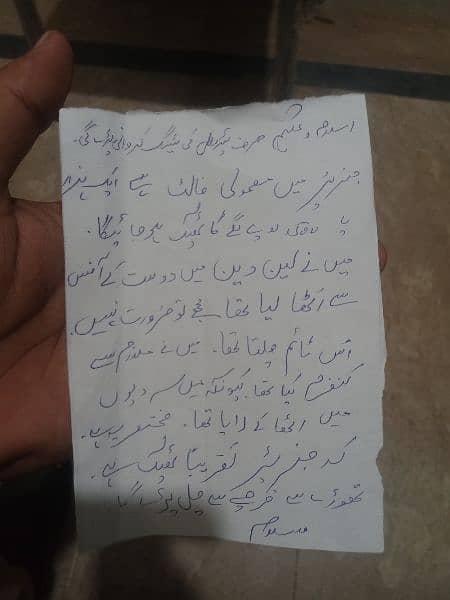 اسلام و علیکم صرف پیٹرول کی ٹینگ کروانی پڑے گی۔
جنریٹر میں معمولی فالٹ ہے ایک ہزار
یا روپے لگے گا ٹھیک ہو جائیگا۔
میں نے لین دین میں دوست کے آفس
سے اٹھا لیا تھا مجھے تو ضرورت نہیں
اس ٹائم چلتا تھا۔ میں نے ملازم سے
کنفرم کیا تھا کیونکہ میں سردیوں
میں اٹھا کے لایا تھا۔ مختصر یہ ہے۔
کہ جنریٹر تقریباً ٹھیک ہے۔
تھوڑے سے خرچے سے چل پڑے گا۔
سلام